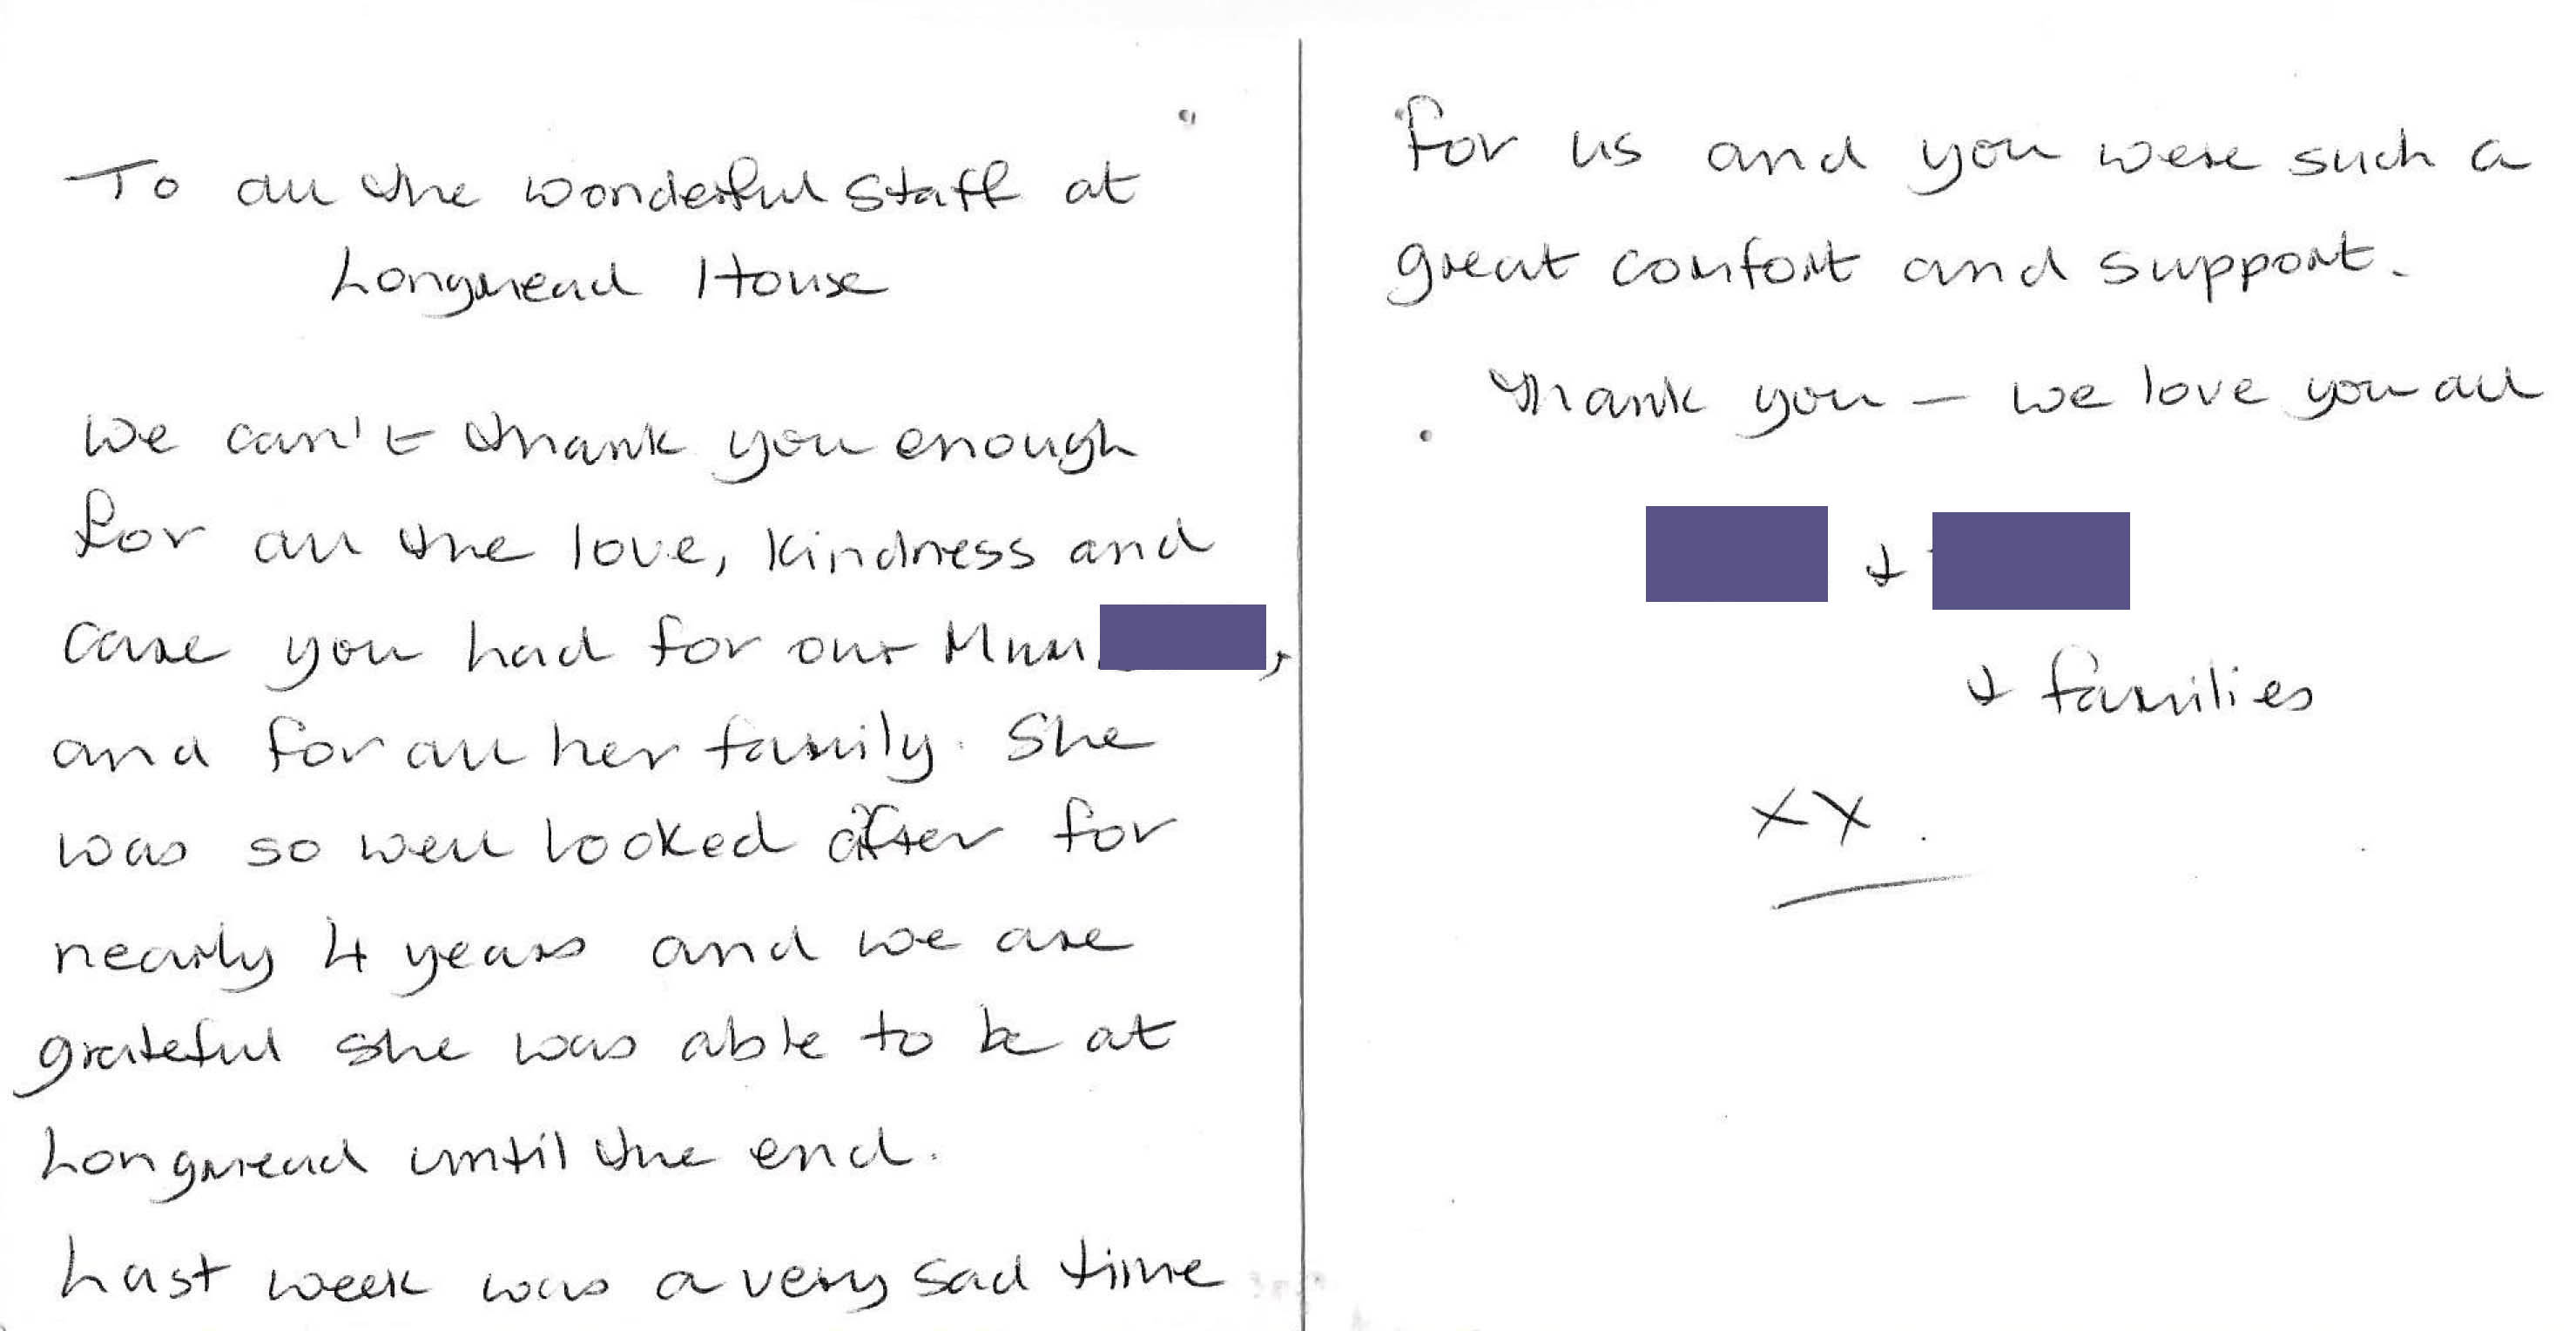 To all the wonderful staff at
Longmead House
We can't thank you enough
for all the love, kindness and
care you had for our Mum ,
and for all her family. She
was so well looked after for
nearly 4 years and we are
grateful she was able to be at
Longmead until the end.
Last week was a very sad time
for us and you were such a
great comfort and support.
Thank you – we love you all
+
+ families
xx